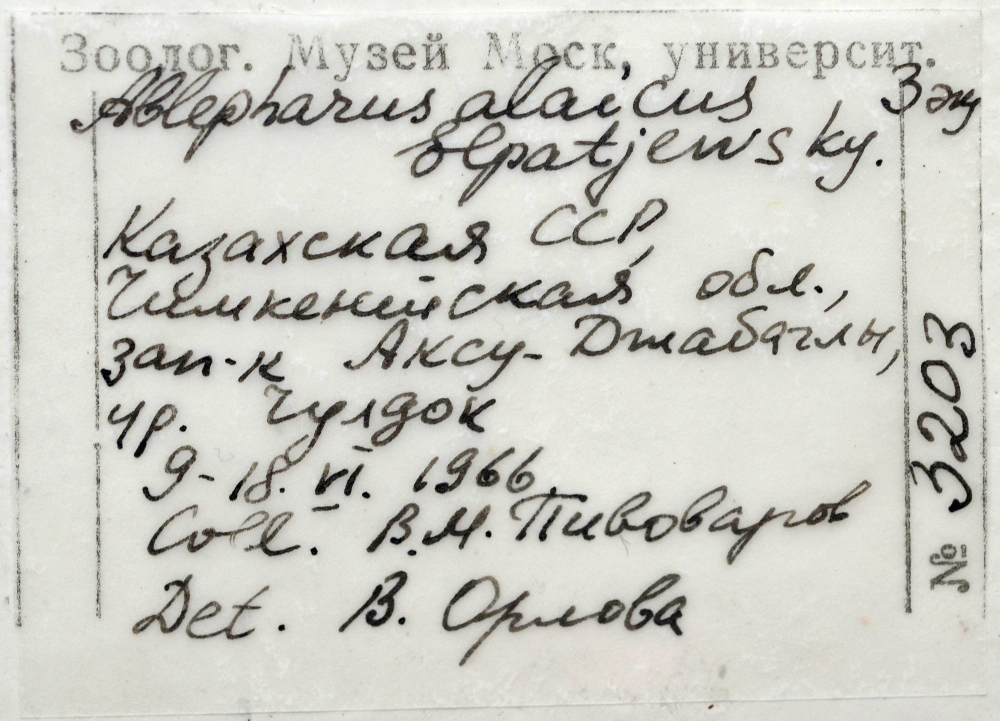 Зоолог. Музей Моск. университ.
Ablepharus alaicus 3 экз
Elpatjewsky.
Казахская ССР,
Чимкентская обл.,
зап-к Аксу-Джабаглы,
ур. Чулдок
9-18. VI. 1966
Coll. В.М. Пивоваров
Det. В. Орлова
№ 3203